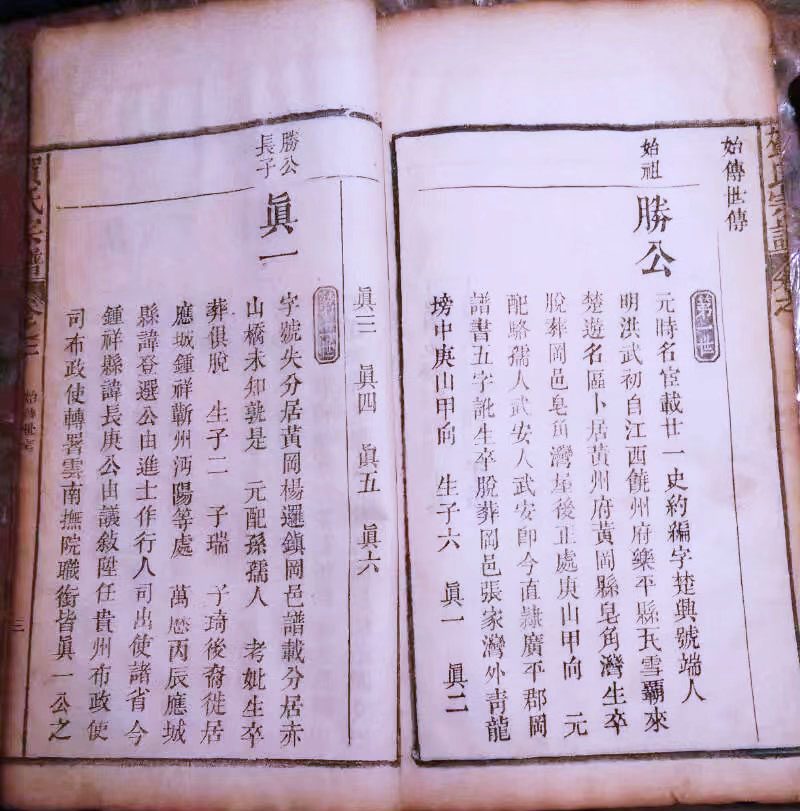 始傳世傳
始祖
勝公
第一世
元時名宦載廿一史約編字楚興號端人
明洪武初自江西饒州府樂平縣瓦雪霸來
楚遊名區卜居黃州府黃岡縣皂角灣生卒
脫葬岡邑皂角灣屋後正處庚山甲向 元
配駱孺人武安人武安卽今直隸廣平郡岡
譜書五字訛生卒脫葬岡邑張家灣外青龍
塝中庚山甲向 生子六 眞一 眞二
眞三 眞四 眞五 眞六
勝公
長子
眞一
世
字號失分居黃岡楊邏鎮岡邑譜載分居赤
山橋未知孰是 元配孫孺人 考妣生卒
葬俱脫 生子二 子瑞 子琦後裔徙居
應城鍾祥蘄州沔陽等處 萬懸丙辰應城
縣諱登選公由進士作行人司出使諸省今
鍾祥縣諱長庚公由議敘陞任貴州布政使
司布政使轉署雲南撫院職銜皆眞一公之
氏宗譜
卷之
三